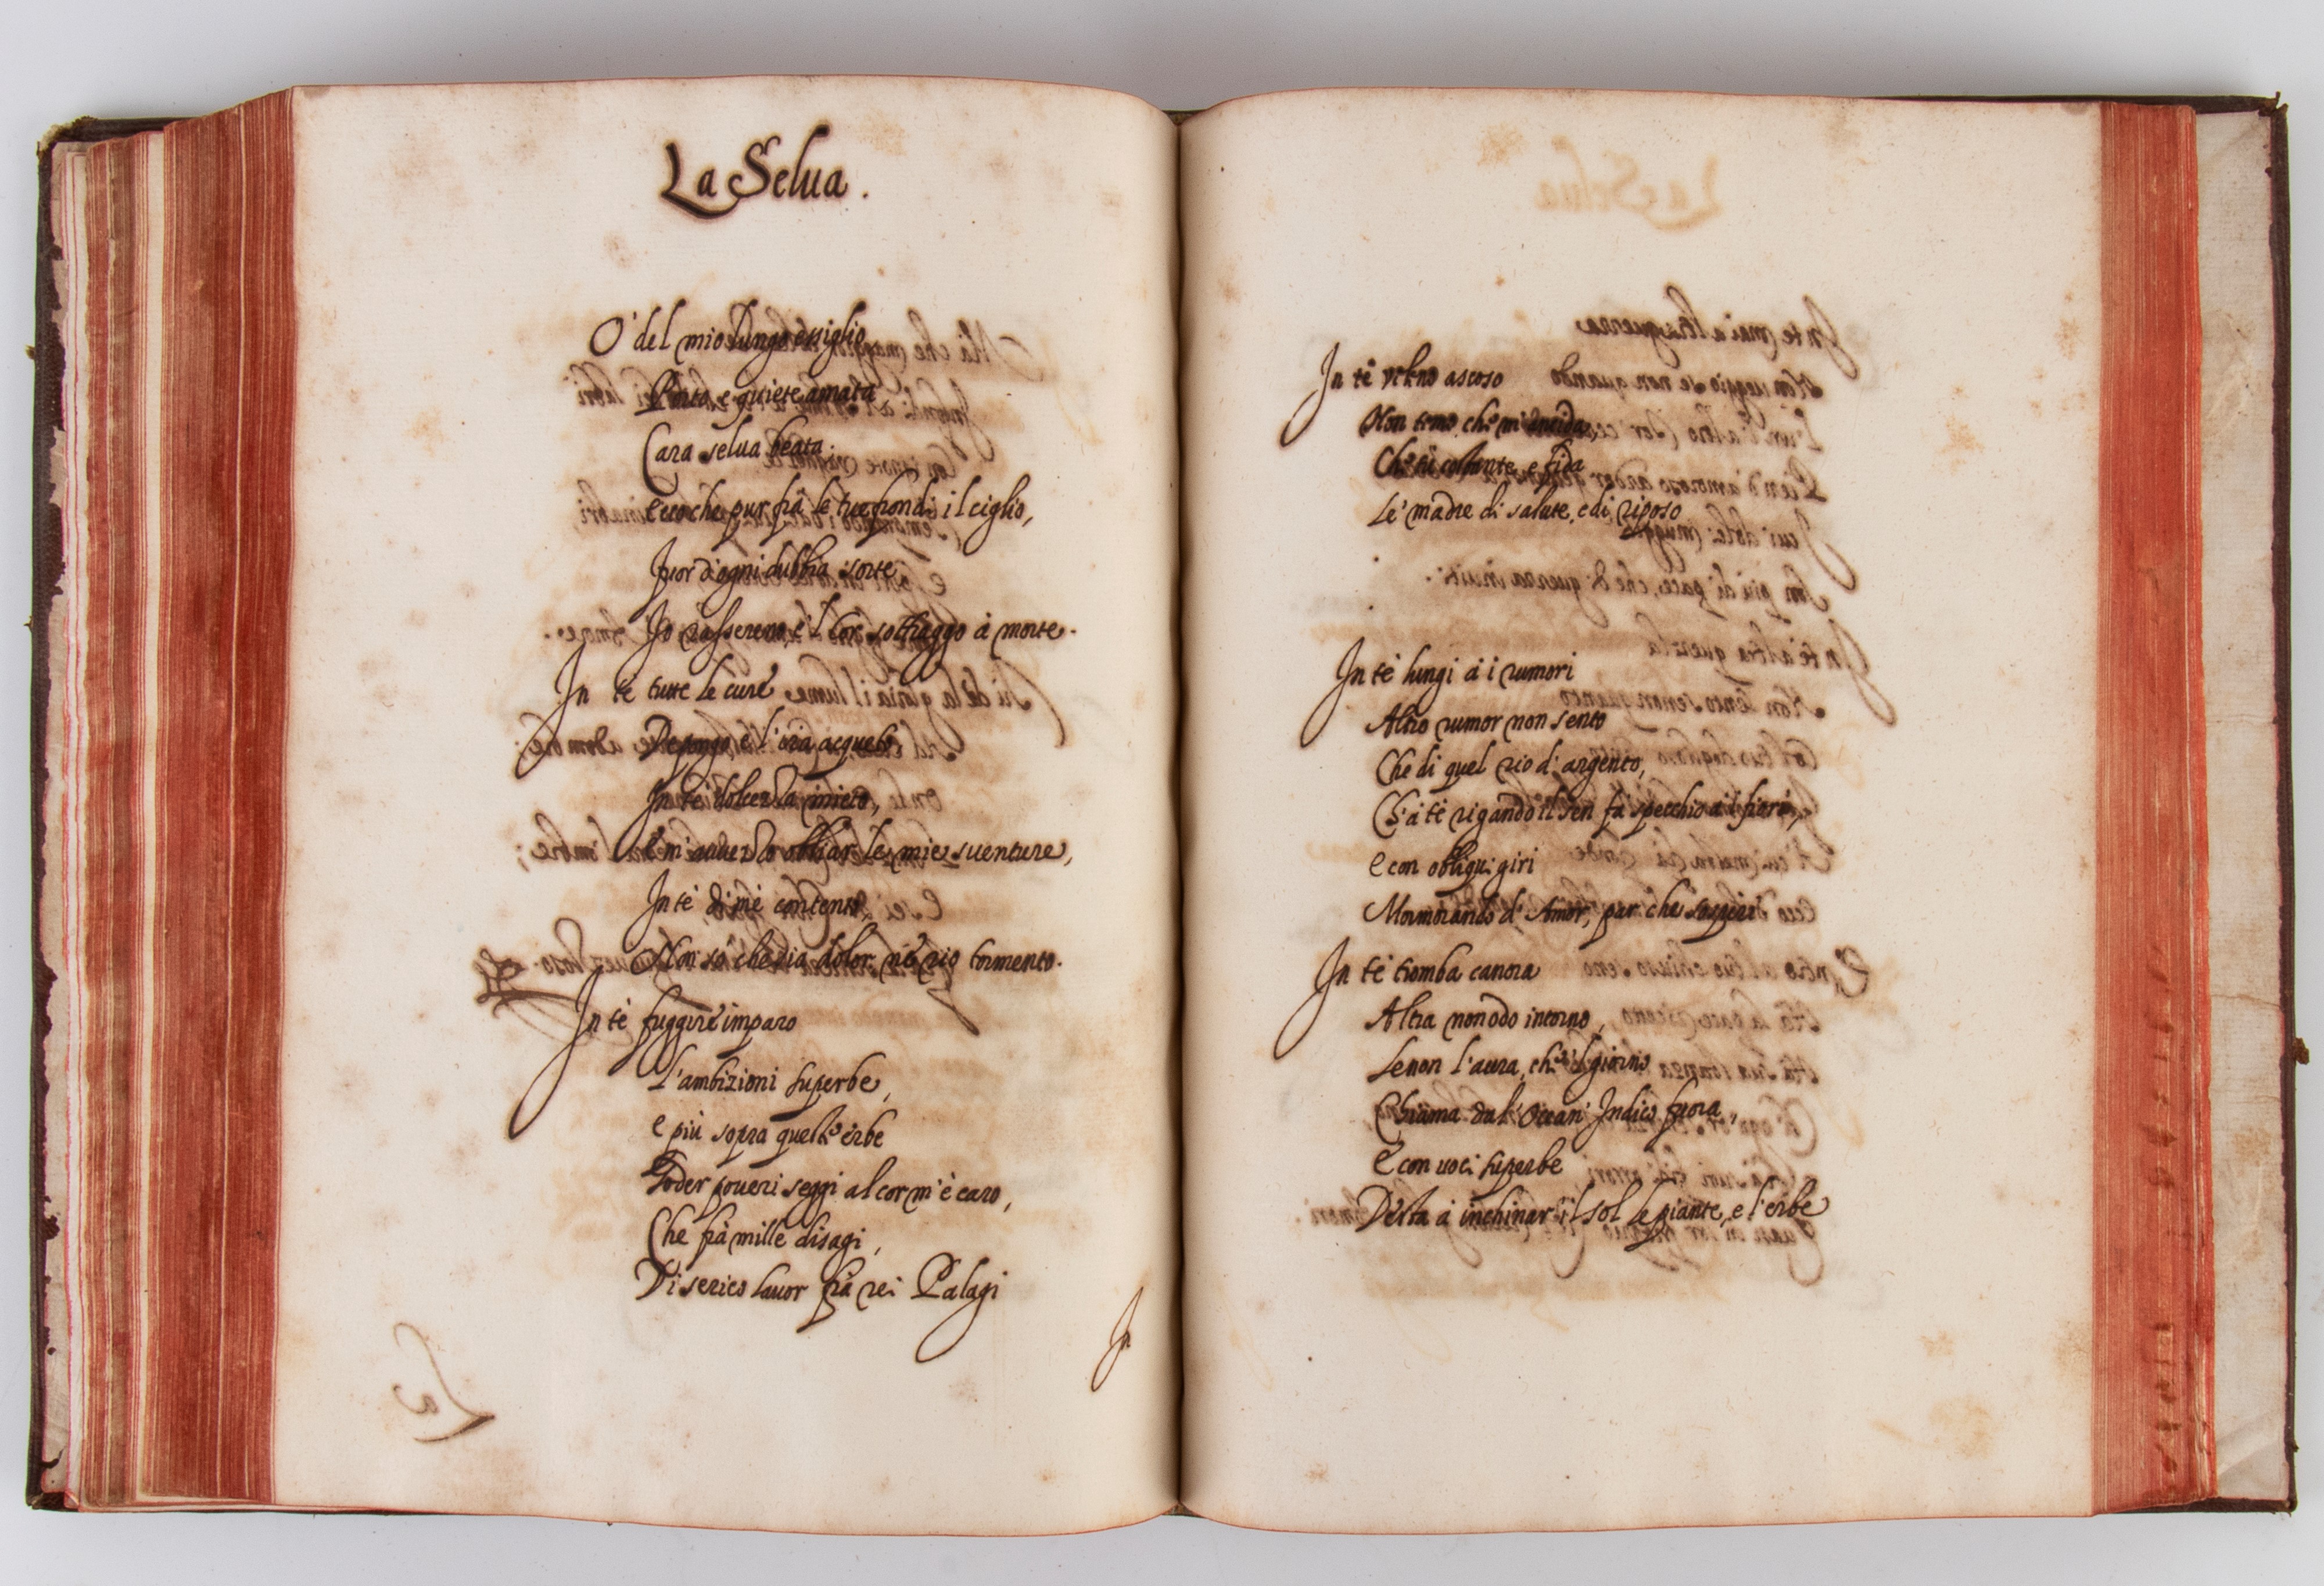 La Selua.
O' del mio lungo essiglio
Porto, e quiete amata
Cara selua beata;
Ecco che pur frà le tue frondi il ciglio,
Fuor d'ogni dubbia sorte
Io rassereno, e 'l cor sottraggo à morte.
In te tutte le cure
Depongo è l'ira acqueto,
In te dolcezza mieto,
E m'auuezzo obliar le mie suenture,
In te di mè contento,
Non sò che sia dolor, nè rio tormento.
In tè fuggire imparo
L'ambizioni superbe,
E più sopra quest'erbe
Poder poueri seggi al cor m'è caro,
Che frà mille disagi,
Di serico lauor frà rei Palagi
In
In tè veleno ascoso
Non temo, che m'ancida,
Che tù costante, e fida
Se' madre di salute, e di riposo
In tè lungi à i rumori
Altro rumor non sento
Che di quel rio d'argento,
Ch'à tè rigando il sen fà specchio à i fiori,
E con obliqui giri
Mormorando d'Amor, par che sospiri
In tè tromba canora
Altra non odo intorno,
Se non l'aura, che 'l giorno
Chiama dal'Ocean' Indico fuora,
E con uoci superbe
Desta à inchinar il sol le piante, e l'erbe